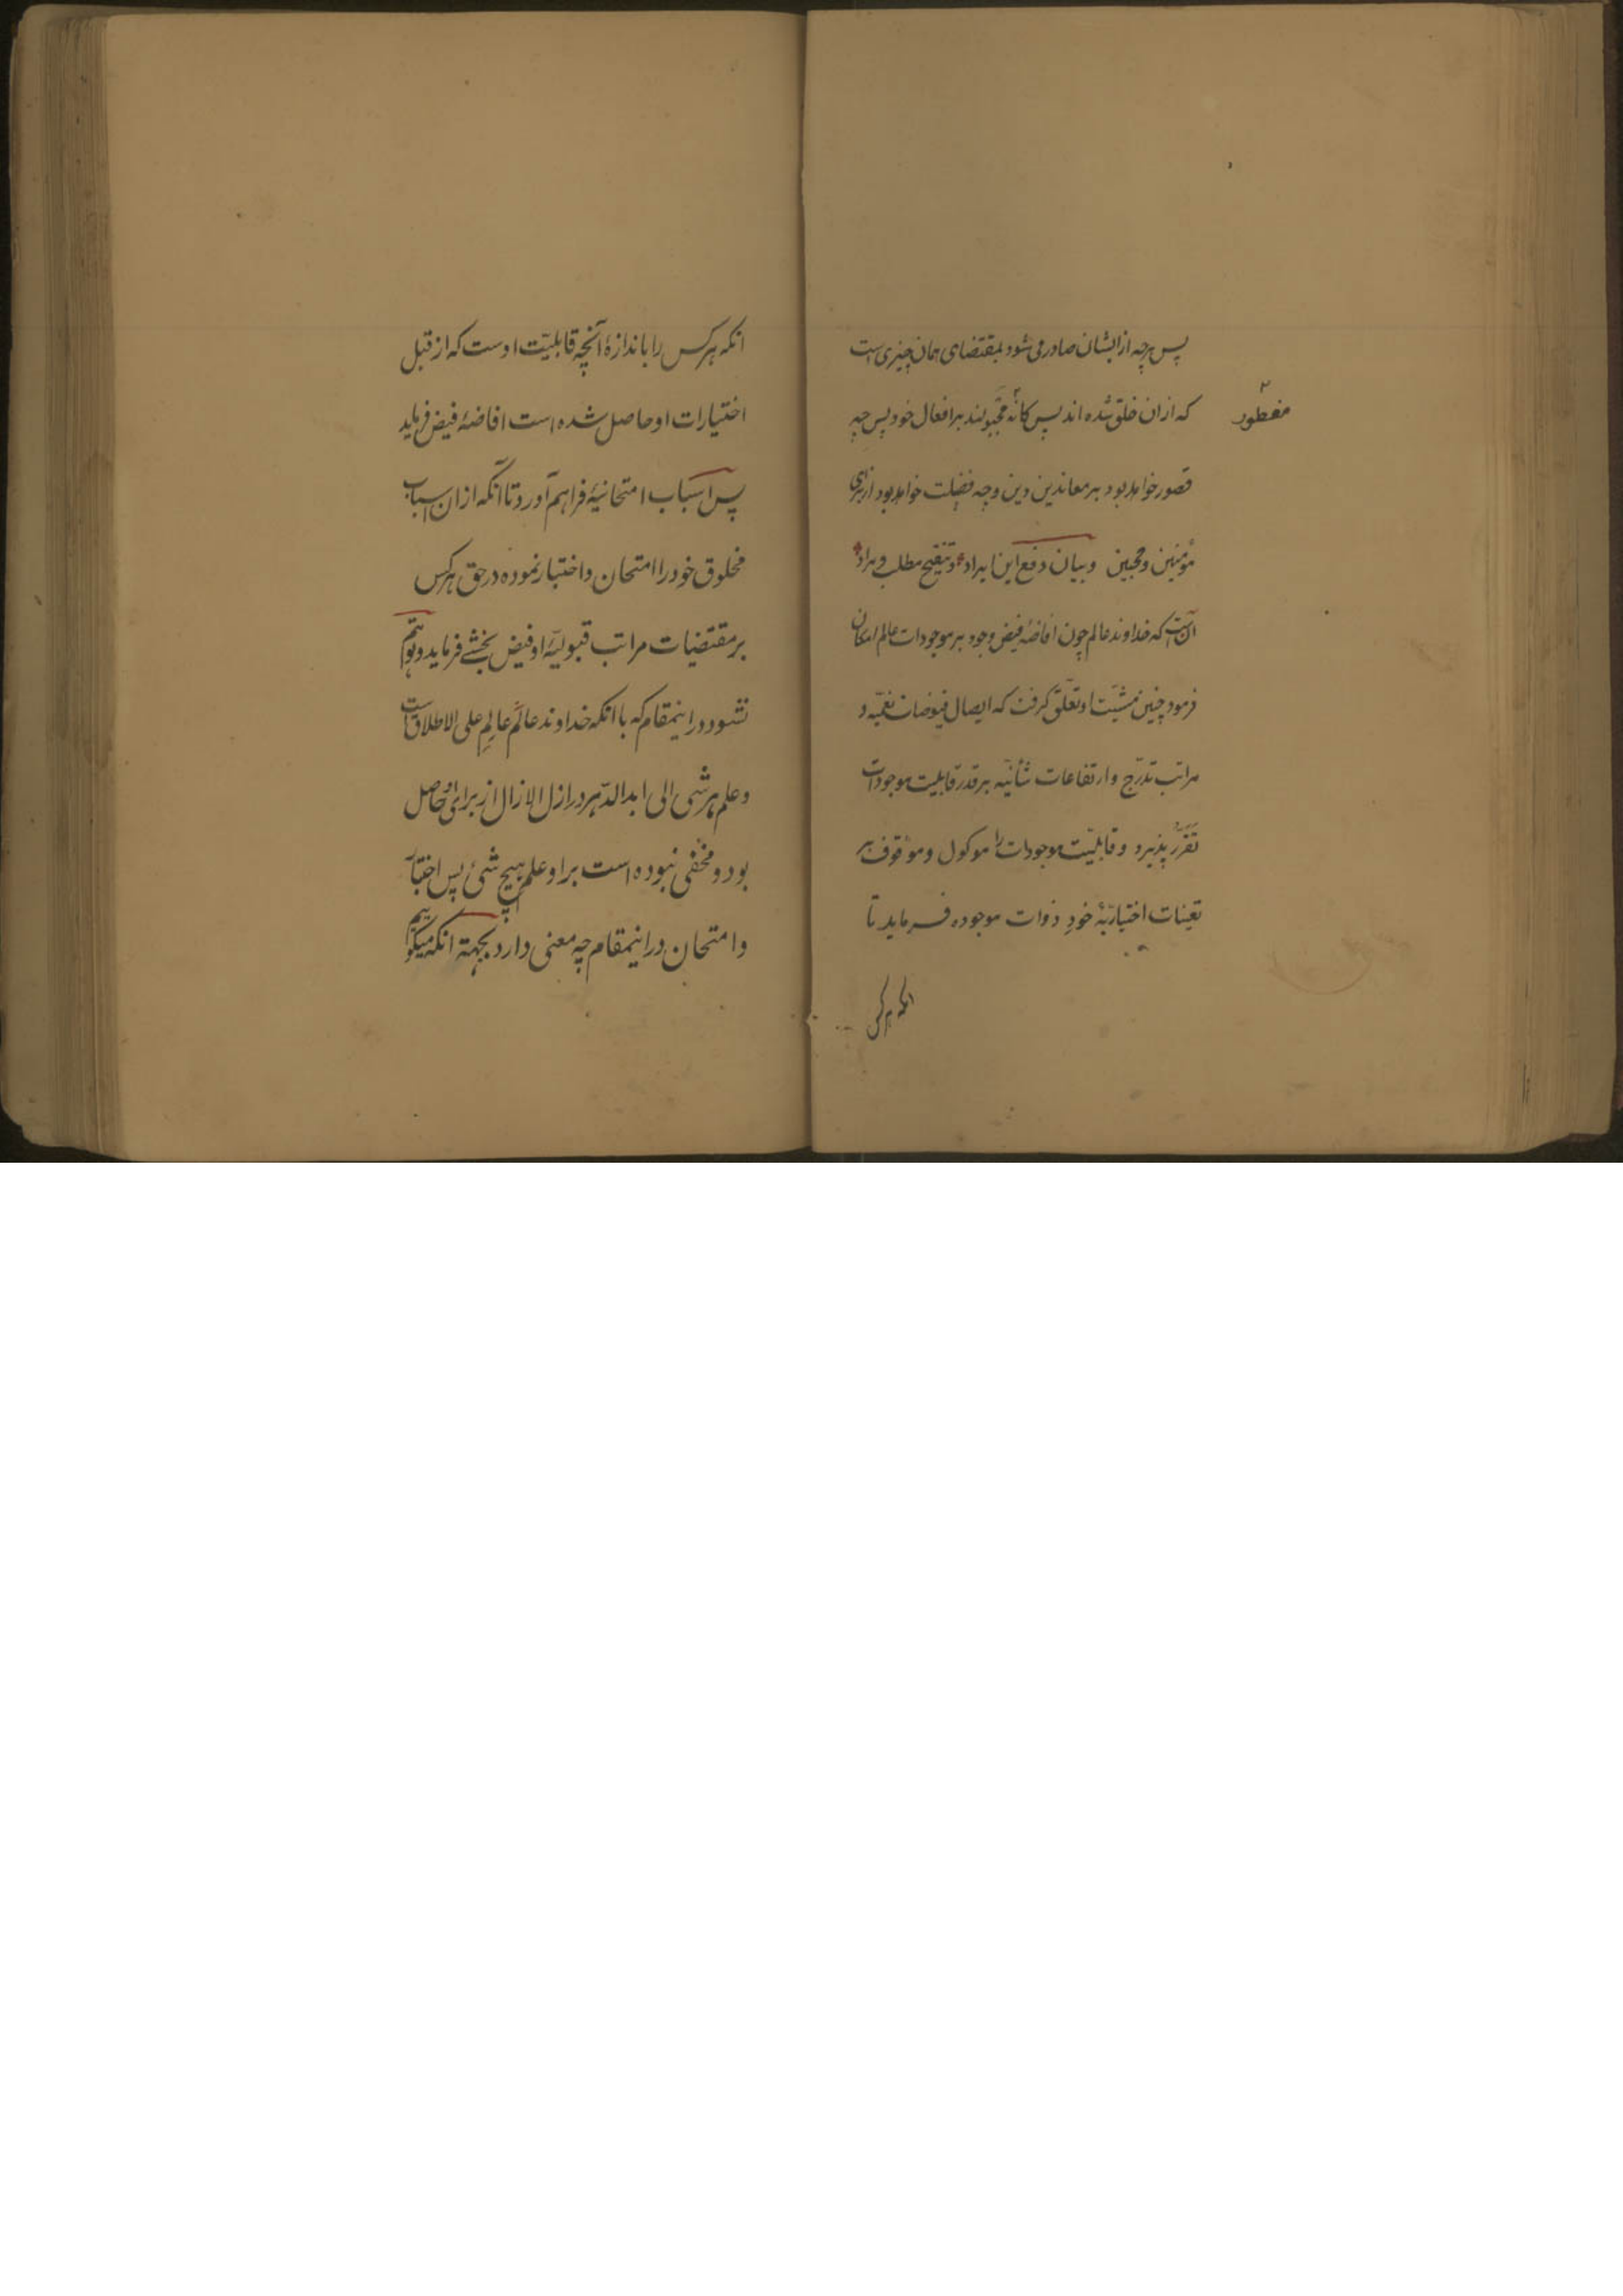 پس هرچه از ایشان صادر می شود بمقتضای همان چیزی است
که از ان خلق شده اند پس کانّه مجبولند بر افعال خود پس چه
مفطور
قصور خواهد بود بر معاندین دین و چه فضیلت خواهد بود از برای
مؤمنین و محبین و بیان دفع این ایراد و تنقیح مطلب و مراد
آنست که خداوند عالم چون افاضهٔ فیض وجود بر موجودات عالم امکان
فرمود چنین مشیّت او تعلّق گرفت که ایصال فیوضات
مراتب تدرّج و ارتفاعات شأنیّه بر قدر قابلیت موجودات
تقرّر پذیرد و قابلیّت موجودات را موکول و موقوف بر
تعینات اختیاریّهٔ خودِ ذوات موجوده فرماید تا
انکه هرکس
انکه هرکس را باندازهٔ آنچه قابلیّت اوست که از قبل
اختیارات او حاصل شده است افاضهٔ فیض فرماید
پس اسباب امتحانیهٔ فراهم آورد تا آنکه از ان اسباب
مخلوق خود را امتحان و اختبار نموده در حق هرکس
بر مقتضیات مراتب قبولیّهٔ او فیض بخشی فرماید و توهّم
نشود در اینمقام که با انکه خداوند عالَم عالِمِ علی الاطلاق است
و علم هرشی الی ابد الدّهر در ازل الازال از برای او حاصل
بود و مخفی نبوده است بر او علم هیچ شئ پس اختبار
و امتحان در اینمقام چه معنی دارد بجهة انکه میگوییم